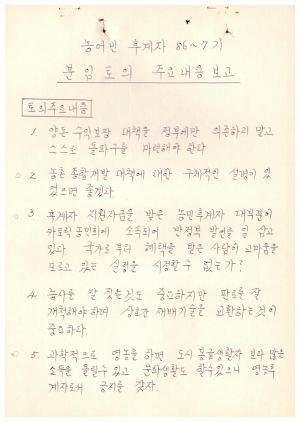 농어민 후계자 86~7기
분임토의 주요내용보고
토의주요내용
1. 양돈 수익보장 대책을 정부에만 의존하지 말고
스스로 돌파구를 마련해야 한다
2. 농촌 종합개발 대책에 대한 구체적인 설명이 있
었으면 좋겠다
3. 후계자 지원자금을 받은 농민후계자 대부분이
카토릭 농민회에 소속되어 반정부 발언을 일 삼고
있다 국가로부터 혜택을 받은 사람이 고마움을
모르고 있는 실정을 시정할 수 없는가?
4. 농사를 잘 짓는것도 중요하지만 판로를 잘
개척해야 하며 상호간 재배기술을 교환하는것이
중요하다.
5. 과학적으로 영농을 하면 도시 봉급생활자 보다 많은
소득을 올릴수 있고 문화생활도 할수있으니 영농후
계자로서 긍지를 갖자.